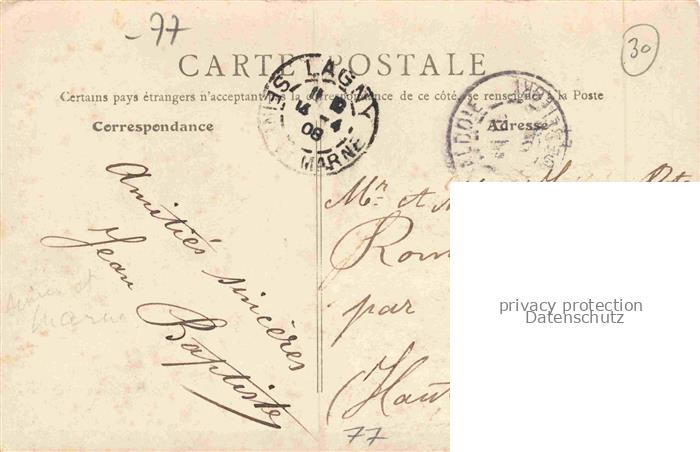 -77
30
CARTE POSTALE
Certains pays étrangers n'acceptant pas la correspondance de ce côté, se renseigner à la Poste
Correspondance
Adresse
LAGNY
14 -4
08
SEINE
MARNE
Amitiés sincères
Jean Baptiste
Mr et
par
(Haut
77
Marne
privacy protection
Datenschutz